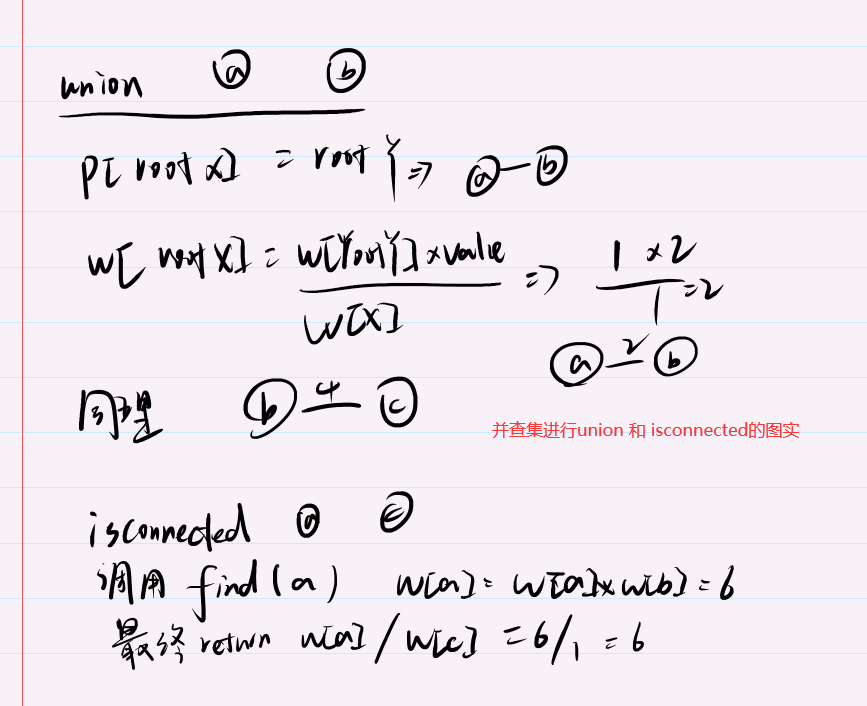 union ⓐ ⓑ
P[root x] = root Y => ⓐ—ⓑ
W[root X] = W[rootY]×value / W[X] => 1×2 / 1 = 2
ⓐ 2 ⓑ
同理 ⓑ 4 ⓒ
并查集进行union 和 isconnected的图实
isconnected ⓐ ⓒ
调用 find(a) W[a] = W[a]×W[b] = 6
最终 return W[a] / W[c] = 6/1 = 6